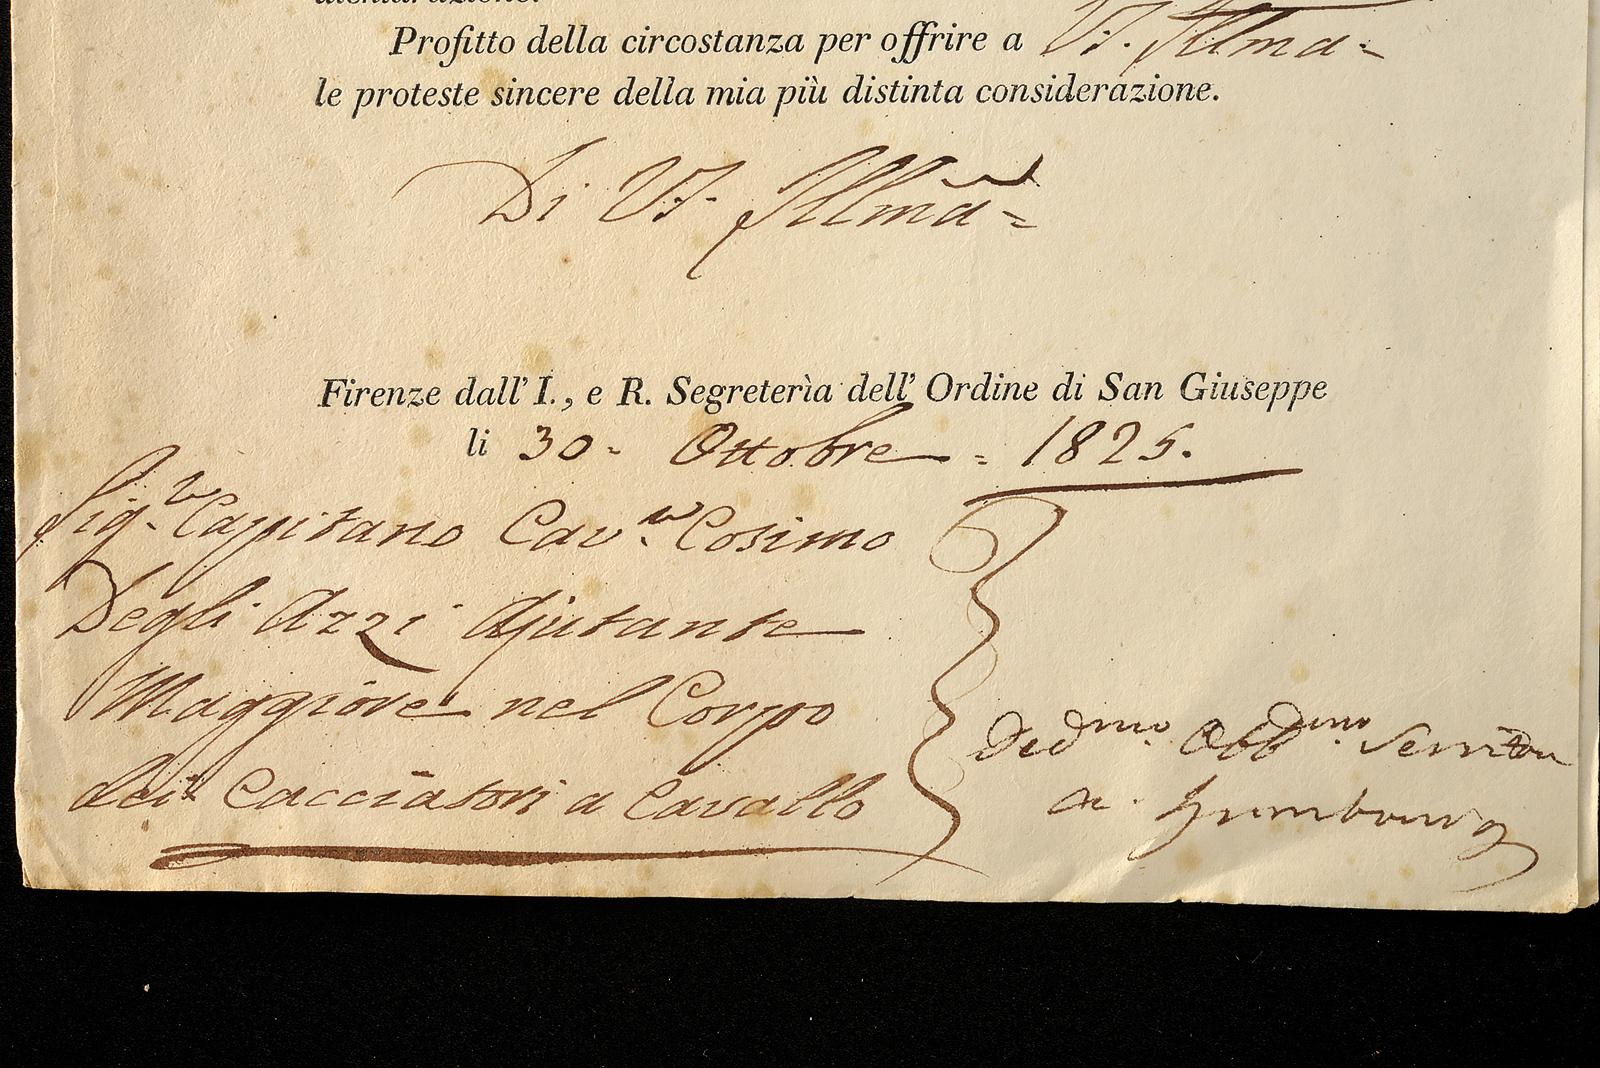 dichiarazione.
Profitto della circostanza per offrire a V. S. Illma
le proteste sincere della mia più distinta considerazione.
Di V. S. Illma
Firenze dall' I., e R. Segreterìa dell' Ordine di San Giuseppe
li 30. Ottobre = 1825.
Sig.r Capitano Cav.re Cosimo
Degli Azzi Ajutante
Maggiore nel Corpo
dei Cacciatori a Cavallo
Devmo Obbmo Servitore